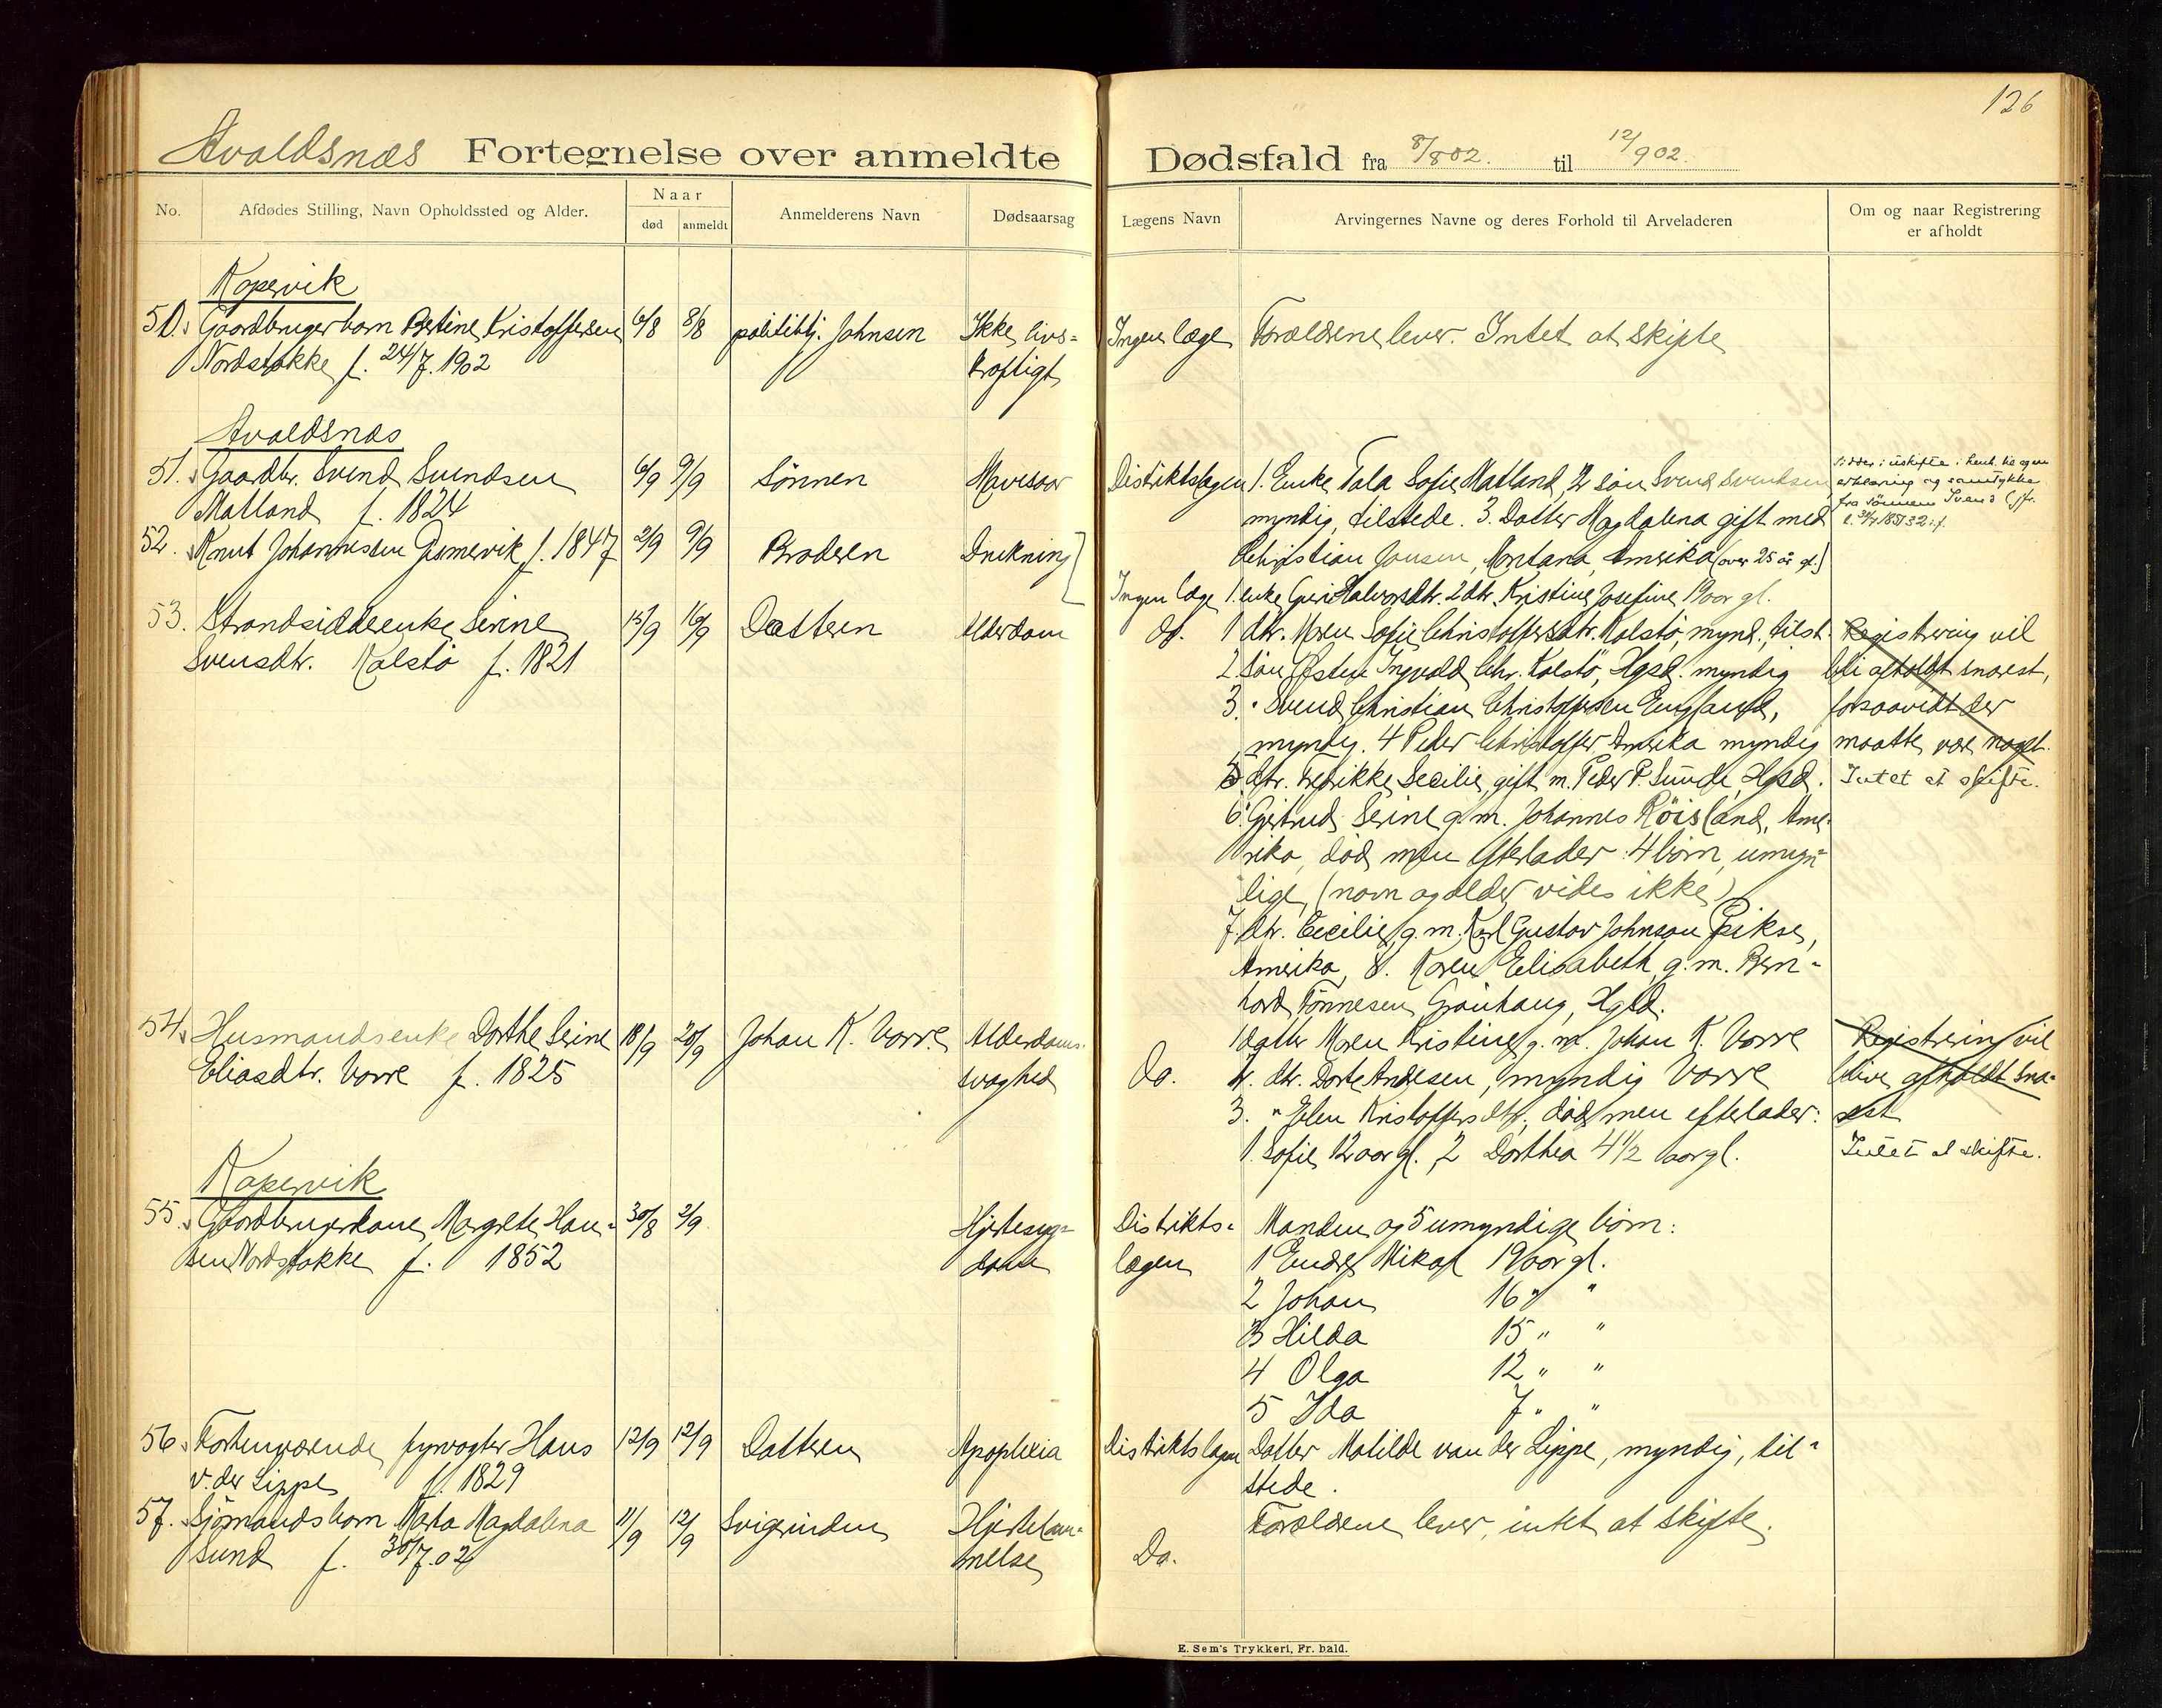 126
Avaldsnæs Fortegnelse over anmeldte Dødsfald fra 8/8 02. til 12/9 02.
No. Afdødes Stilling, Navn Opholdssted og Alder. Naar død anmeldt Anmelderens Navn Dødsaarsag Lægens Navn Arvingernes Navne og deres Forhold til Arveladeren Om og naar Registrering er afholdt
Kopervik
50. Gaardbrugerbarn Bertine Kristoffersen 6/8 8/8 politibtj. Johnsen Ikke livs= Ingen læge Forældrene lever. Intet at skifte
Nordstokke f. 24/7. 1902 kraftigt
Avaldsnæs
51. Gaardbr. Svend Svendsen 6/9 9/9 Sönnen Mavesaar Distriktslægen 1. Enke Tala Sofie Matland, 2 sön Svend Svendsen
Matland f. 1824 myndig, tilstede. 3. Datter Magdalena gift med
Sidder i uskifte i henh. til egen
erklæring og samtykke
fra sönnen Svend
52. Knut Johannessen Gismervik f. 1847 2/9 9/9 Broderen Drukning Christian Jonsen, Montana, Amerika (over 25 år gl.)
Ingen læge 1. enke Guri Halvorsdtr. 2 dtr. Kristine Josefine 19 aar gl.
53. Strandsidderenke Serine 15/9 16/9 Datteren Alderdom do. 1 dtr. Maren Sofie Christoffersdtr. Kalstö, mynd., tilst. Registrering vil
Svensdtr. Kalstö f. 1821 2. sön Östen Ingvald Chr. Kalstö, Hgsd. myndig bli afholdt snarest,
3. " Svend Christian Christoffersen England, forsaavidt der
myndig. 4 Peder Christoffer Amerika myndig maatte være noget.
5 dtr. Fredrikke Secilie, gift m. Peder P. Sunde, Hgsd. Intet at skifte.
6. Gjertrud Serine g. m. Johannes Röisland, Ame-
rika, död men efterlader 4 börn, umyn=
lige (navn og alder vides ikke)
7. dtr. Cecilie g. m. Karl Gustav Johnson
Amerika, 8. Karen Elisabeth g. m. Bern-
hard Tönnesen, Grönhaug, Hgsd.
54. Husmandsenke Dorthe Serine 18/9 20/9 Johan K. Vorre Alderdoms- Do. 1 datter Maren Kristine g. m. Johan K. Vorre Registrering vil
Eliasdtr. Vorre f. 1825 svaghed 2. dtr. Dorte Andersen, myndig Vorre blive afholdt sna-
3. " Elen Kristoffersdtr., död men efterlader: rest
1. Sofie 12 aar gl., 2 Dorthea 4 1/2 aar gl. Intet at skifte.
Kopervik
55. Gaardbrugerkone Margrete Han- 30/8 2/9 Hjertesyg= Distrikts= Manden og 5 umyndige börn:
sen Nordstokke f. 1852 dom lægen 1 Endre Mikal 19 aar gl.
2 Johan 16 " "
3 Hilda 15 " "
4 Olga 12 " "
5 Ida 7 " "
56. Forhenværende fyrvogter Hans 12/9 12/9 Datteren Apoplexia Distriktslægen Datter Matilde van der Lippe, myndig, til-
v. der Lippe f. 1829 stede.
57. Sjömandsbarn Marta Magdalena 11/9 12/9 Svigerinden Hjertelam- Do. Forældrene lever, intet at skifte.
Sund f. 30/7. 02 melse
E. Sem's Trykkeri, Fr. hald.